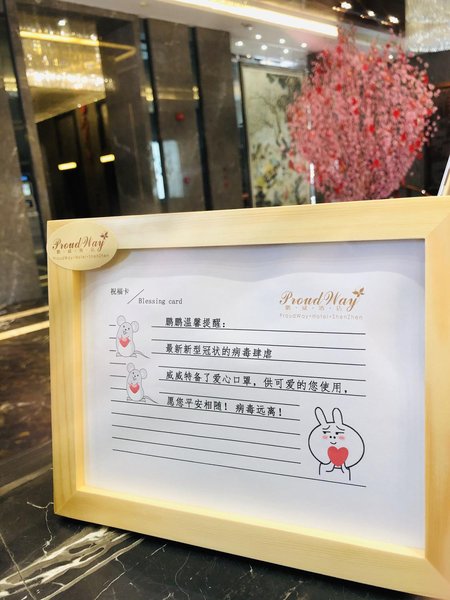 ProudWay
鹏·威·酒·店
ProudWay·Hotel·ShenZhen
祝福卡
Blessing card
ProudWay
鹏·威·酒·店
ProudWay·Hotel·ShenZhen
鹏鹏温馨提醒：
最新新型冠状的病毒肆虐
威威特备了爱心口罩，供可爱的您使用，
愿您平安相随！病毒远离！